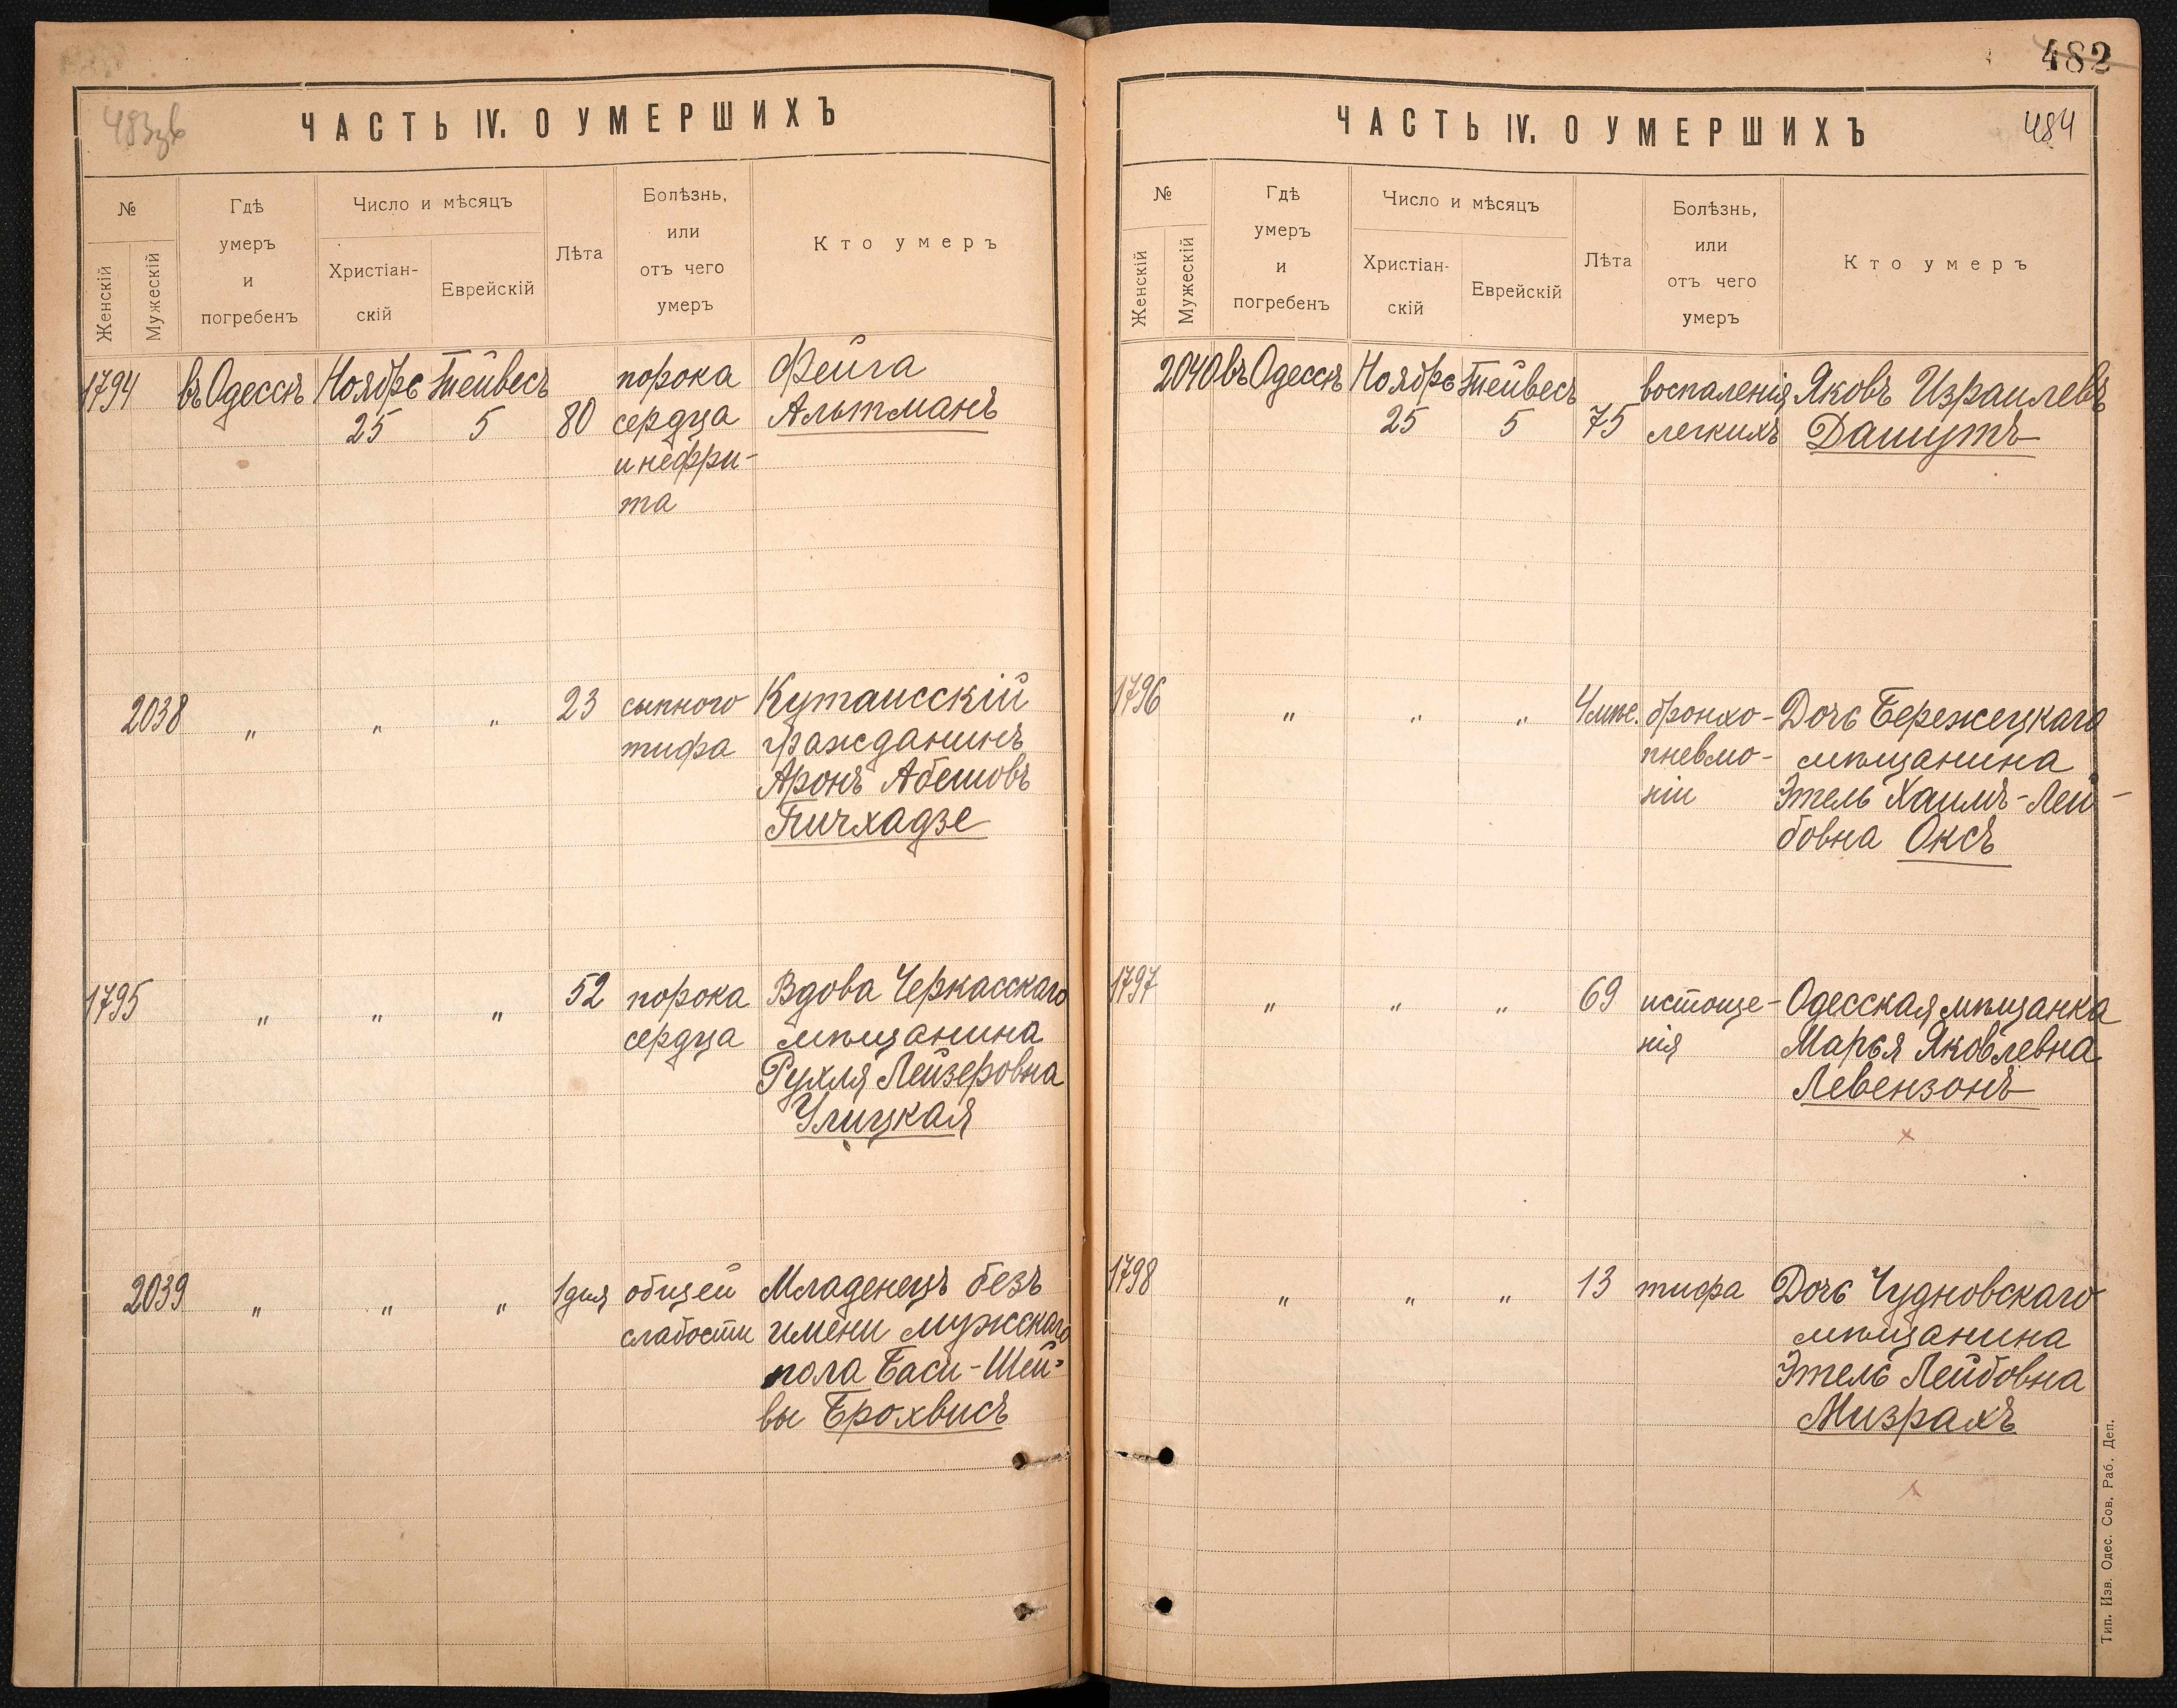 483зв
ЧАСТЬ IV. О УМЕРШИХЪ
№
Женскій
Мужескій
Гдѣ
умеръ
и
погребенъ
Число и мѣсяцъ
Христіан-
скій
Еврейскій
Лѣта
Болѣзнь,
или
отъ чего
умеръ
Кто умеръ
1794
въ Одессѣ
Ноябрь
25
Тейвесъ
5
80
порока
сердца
и нефри-
та
Фейга
Альтманъ
2038
"
"
"
23
сыпного
тифа
Кутаисскій
гражданинъ
Аронъ Абешовъ
Пичхадзе
1795
"
"
"
52
порока
сердца
Вдова Черкасскаго
мѣщанина
Рухля Лейзеровна
Улицкая
2039
"
"
"
1 дня
общей
слабости
Младенецъ безъ
имени мужскаго
пола Баси-Шей-
вы Брохвисъ
482
ЧАСТЬ IV. О УМЕРШИХЪ
484
№
Женскій
Мужескій
Гдѣ
умеръ
и
погребенъ
Число и мѣсяцъ
Христіан-
скій
Еврейскій
Лѣта
Болѣзнь,
или
отъ чего
умеръ
Кто умеръ
2040
въ Одессѣ
Ноябрь
25
Тейвесъ
5
75
воспаленія
легкихъ
Яковъ Израилевъ
Дашутъ
1796
"
"
"
4 мѣс.
бронхо-
пневмо-
ніи
Дочь Бережецкаго
мѣщанина
Этель Хаимъ-Лей-
бовна Оксъ
1797
"
"
"
69
истоще-
нія
Одесская мѣщанка
Марья Яковлевна
Левензонъ
1798
"
"
"
13
тифа
Дочь Чудновскаго
мѣщанина
Этель Лейбовна
Мизрахъ
Тип. Изв. Одес. Сов. Раб. Деп.